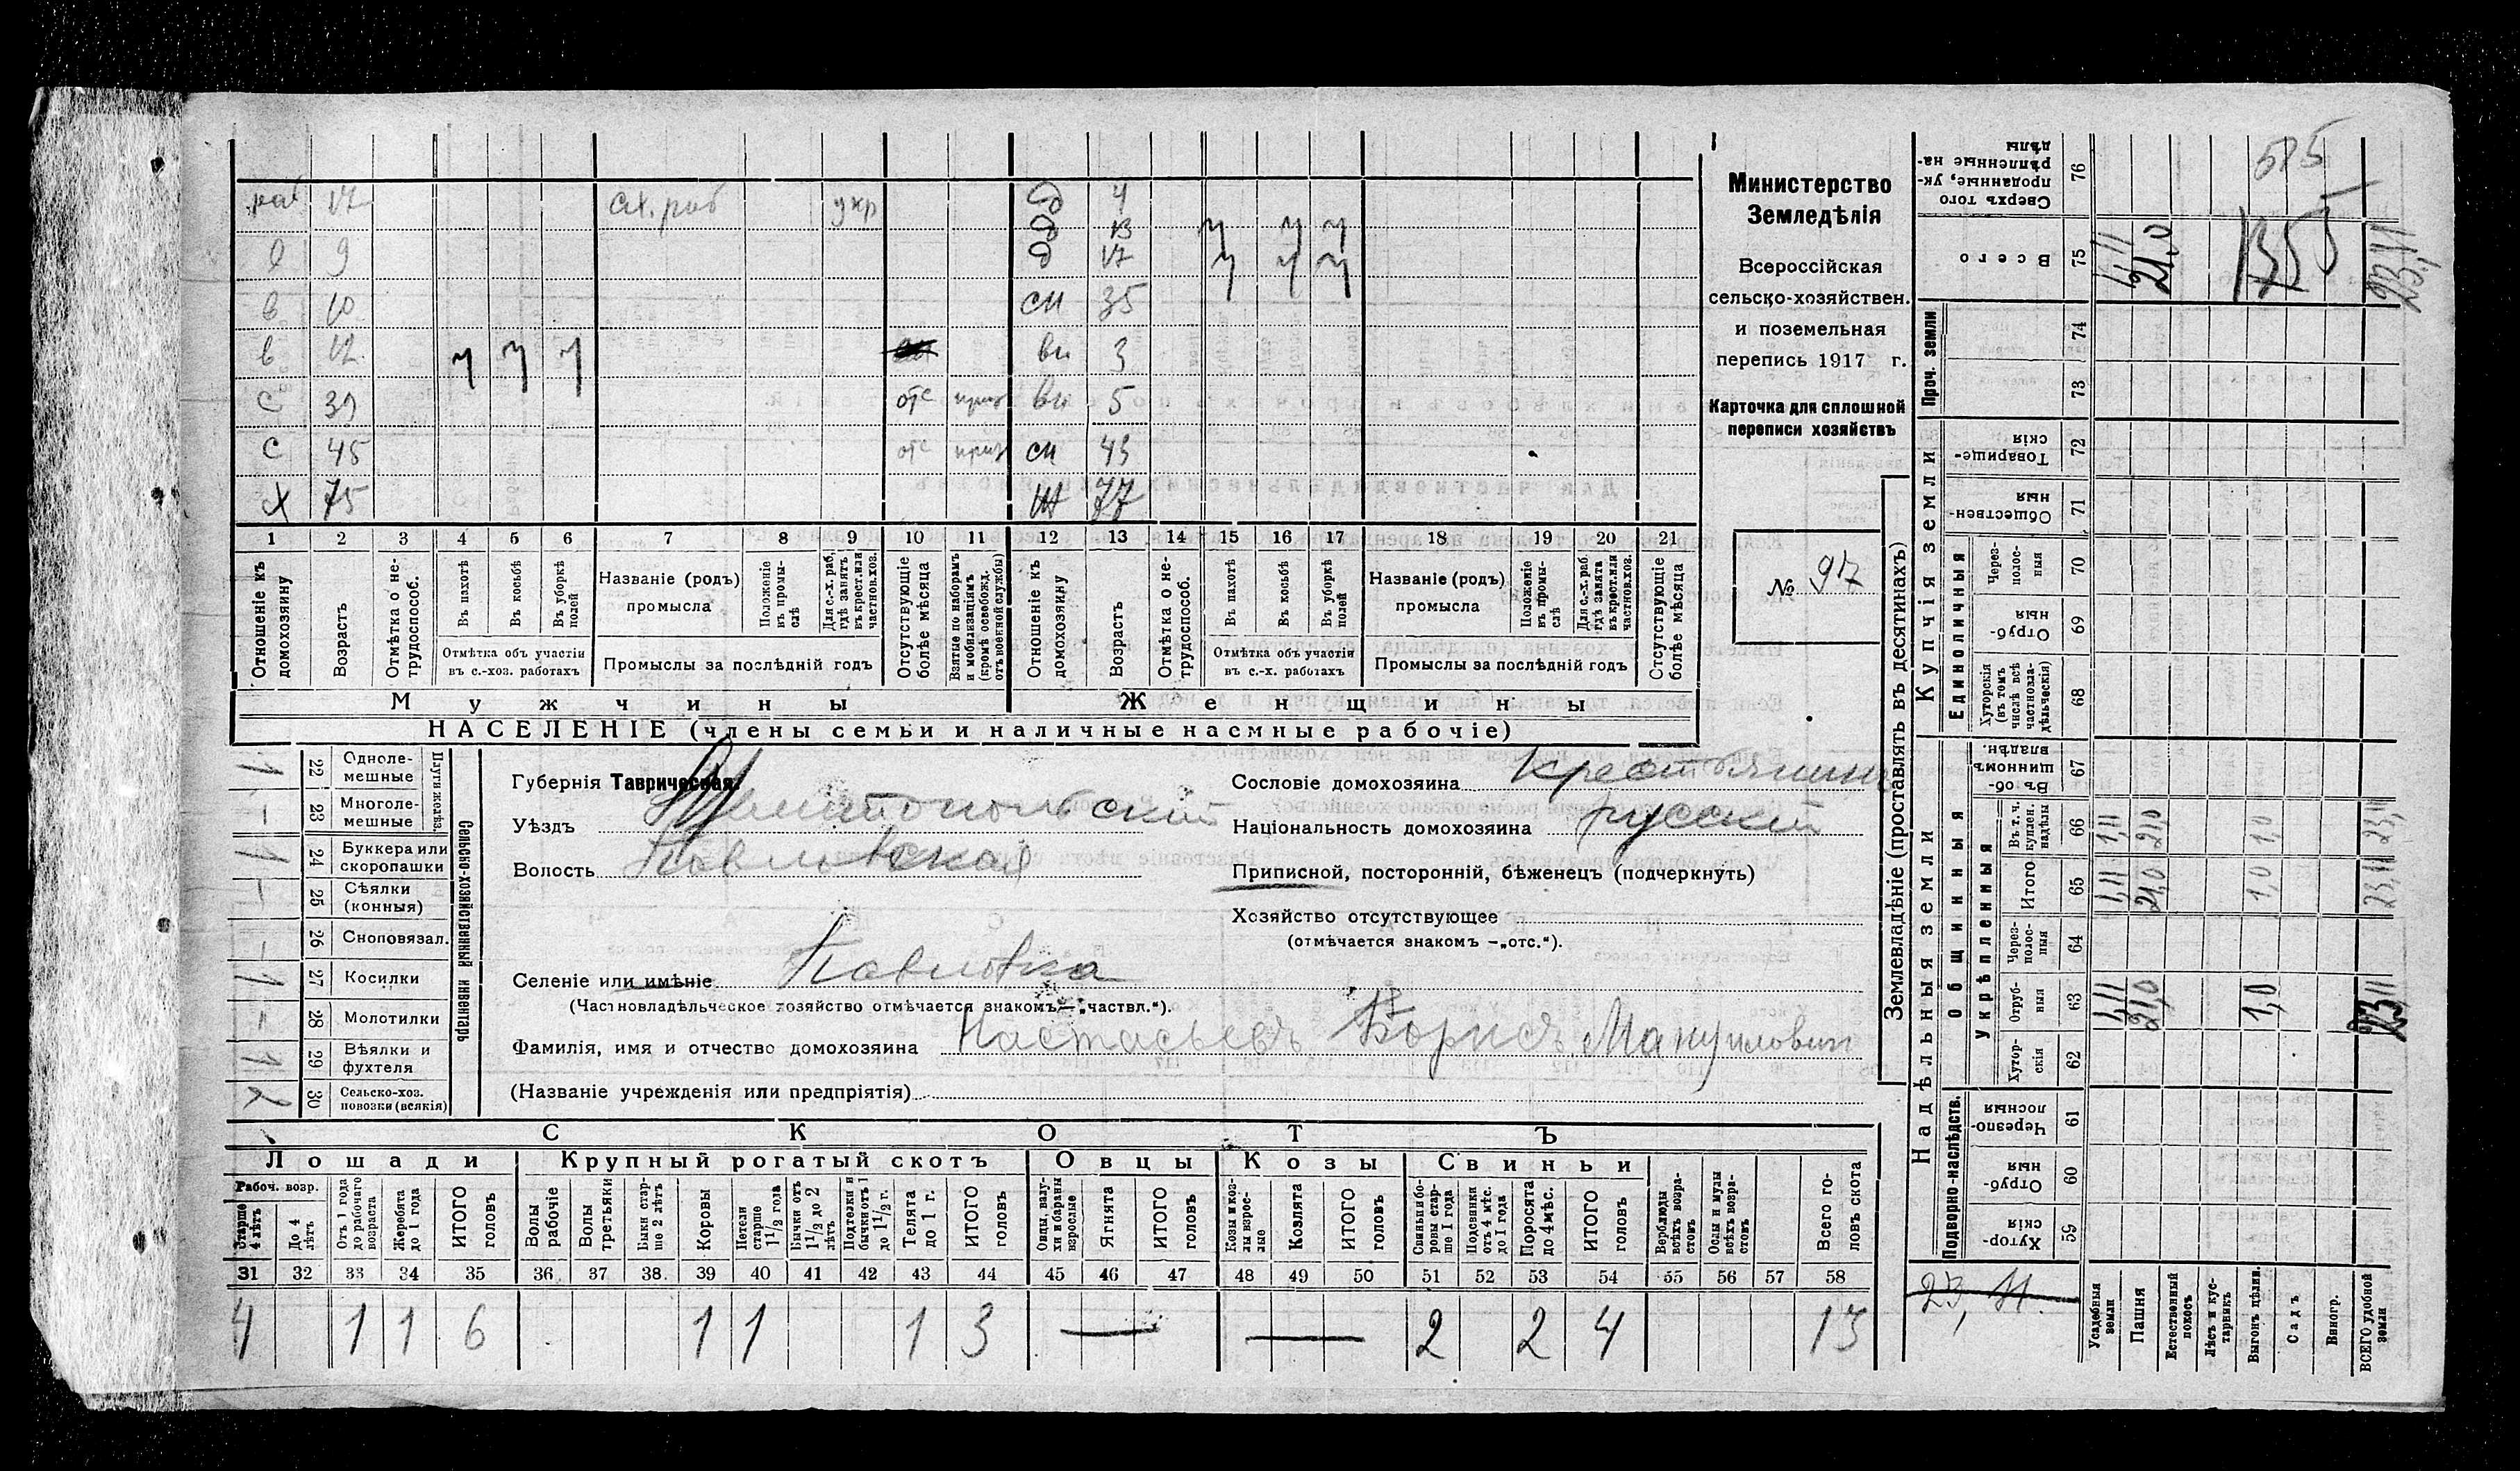 раб 17 сх. раб укр д 4
д 13 ч ч ч
в 9 д 17 ч ч ч
в 10 сн 35
в 12 ч ч ч вн 3
с 39 отс приз вн 5
с 45 отс приз сн 43
х 75 ж 77
1 2 3 4 5 6 7 8 9 10 11 12 13 14 15 16 17 18 19 20 21
Отношеніе къ домохозяину
Возрастъ
Отмѣтка о нетрудоспособ.
Въ пахотѣ
Въ косьбѣ
Въ уборкѣ полей
Отмѣтка объ участіи
въ с.-хоз. работахъ
Названіе (родъ)
промысла
Положеніе въ промыслѣ
Для с.-х. раб, гдѣ занятъ въ крест. или частнов. хоз.
Промыслы за послѣдній годъ
Отсутствующіе болѣе мѣсяца
Взятые по наборамъ и мобилизаціямъ (кромѣ освобожд. отъ военной службы)
Отношеніе къ домохозяину
Возрастъ
Отмѣтка о нетрудоспособ.
Въ пахотѣ
Въ косьбѣ
Въ уборкѣ полей
Отмѣтка объ участіи
въ с.-х. работахъ
Названіе (родъ)
промысла
Положеніе въ промыслѣ
Для с.-х. раб. гдѣ занята въ крест. или частнов. хоз.
Промыслы за послѣдній годъ
Отсутствующіе болѣе мѣсяца
Мужчины
Женщины
НАСЕЛЕНІЕ (члены семьи и наличные наемные рабочіе)
Министерство
Земледѣлія
Всероссійская
сельско-хозяйствен.
и поземельная
перепись 1917 г.
Карточка для сплошной
переписи хозяйствъ
№ 917
1 22 Однолемешные
– 23 Многолемешные
Плуги желѣз.
1 24 Буккера или скоропашки
– 25 Сѣялки (конныя)
– 26 Сноповязал.
1 27 Косилки
– 28 Молотилки
1 29 Вѣялки и фухтеля
2 30 Сельско-хоз. повозки (всякія)
Сельско-хозяйственный инвентарь
Губернія Таврическая.
Уѣздъ Мелитопольскій
Волость Павловская
Селеніе или имѣніе Павловка
(Частновладѣльческое хозяйство отмѣчается знакомъ—„частвл.“).
Фамилія, имя и отчество домохозяина Настасьевъ Борисъ Мануилович
(Названіе учрежденія или предпріятія)
Сословіе домохозяина Крестьянинъ
Національность домохозяина русскій
Приписной, посторонній, бѣженецъ (подчеркнуть)
Хозяйство отсутствующее
(отмѣчается знакомъ —„отс.“).
СКОТЪ
Лошади
Крупный рогатый скотъ
Овцы
Козы
Свиньи
Рабоч. возр.
Старше 4 лѣтъ
До 4 лѣтъ
Отъ 1 года до рабочаго возраста
Жеребята до 1 года
ИТОГО головъ
Волы рабочіе
Волы третьяки
Быки старше 2 лѣтъ
Коровы
Нетели старше 1 1/2 года
Бычки отъ 1 1/2 до 2 лѣтъ
Подтелки и бычки отъ 1 до 1 1/2 г.
Телята до 1 г.
ИТОГО головъ
Овцы, валухи и бараны взрослые
Ягнята
ИТОГО головъ
Козы и козлы взрослые
Козлята
ИТОГО головъ
Свиньи боровы старше 1 года
Подсвинки отъ 4 мѣс. до 1 года
Поросята до 4 мѣс.
ИТОГО головъ
Верблюды всѣхъ возрастовъ
Ослы и мулы всѣхъ возрастовъ
Всего головъ скота
31 32 33 34 35 36 37 38 39 40 41 42 43 44 45 46 47 48 49 50 51 52 53 54 55 56 57 58
4 1 1 6 1 1 1 3 — — 2 2 4 13
Землевладѣніе (проставлять въ десятинахъ)
Сверхъ того проданные, укрѣпленные надѣлы 76 515
Всего 75 1,11 21,0 1355 23,11
Проч. земли 74
73
Купчія земли
Товарищескія 72
Общественныя 71
Единоличныя
Черезполосныя 70
Отрубныя 69
Хуторскія (въ томъ числѣ всѣ частновладѣльческія) 68
Надѣльныя земли
Общинныя
Въ общинномъ владѣн. 67
Укрѣпленныя
Въ т. ч. куплен. надѣлы 66 1,11 21,0 1,0 23,11
Итого 65 1,11 21,0 1,0 23,11
Черезполосныя 64
Отрубныя 63 1,11 21,0 1,0 23,11
Хуторскія 62
Подворно-наслѣдств.
Черезполосныя 61
Отрубныя 60
Хуторскія 59
23,11.
Усадебныя земли
Пашня
Естественный покосъ
Лѣсъ и кустарникъ
Выгонъ цѣлин.
Садъ
Виногр.
ВСЕГО удобной земли